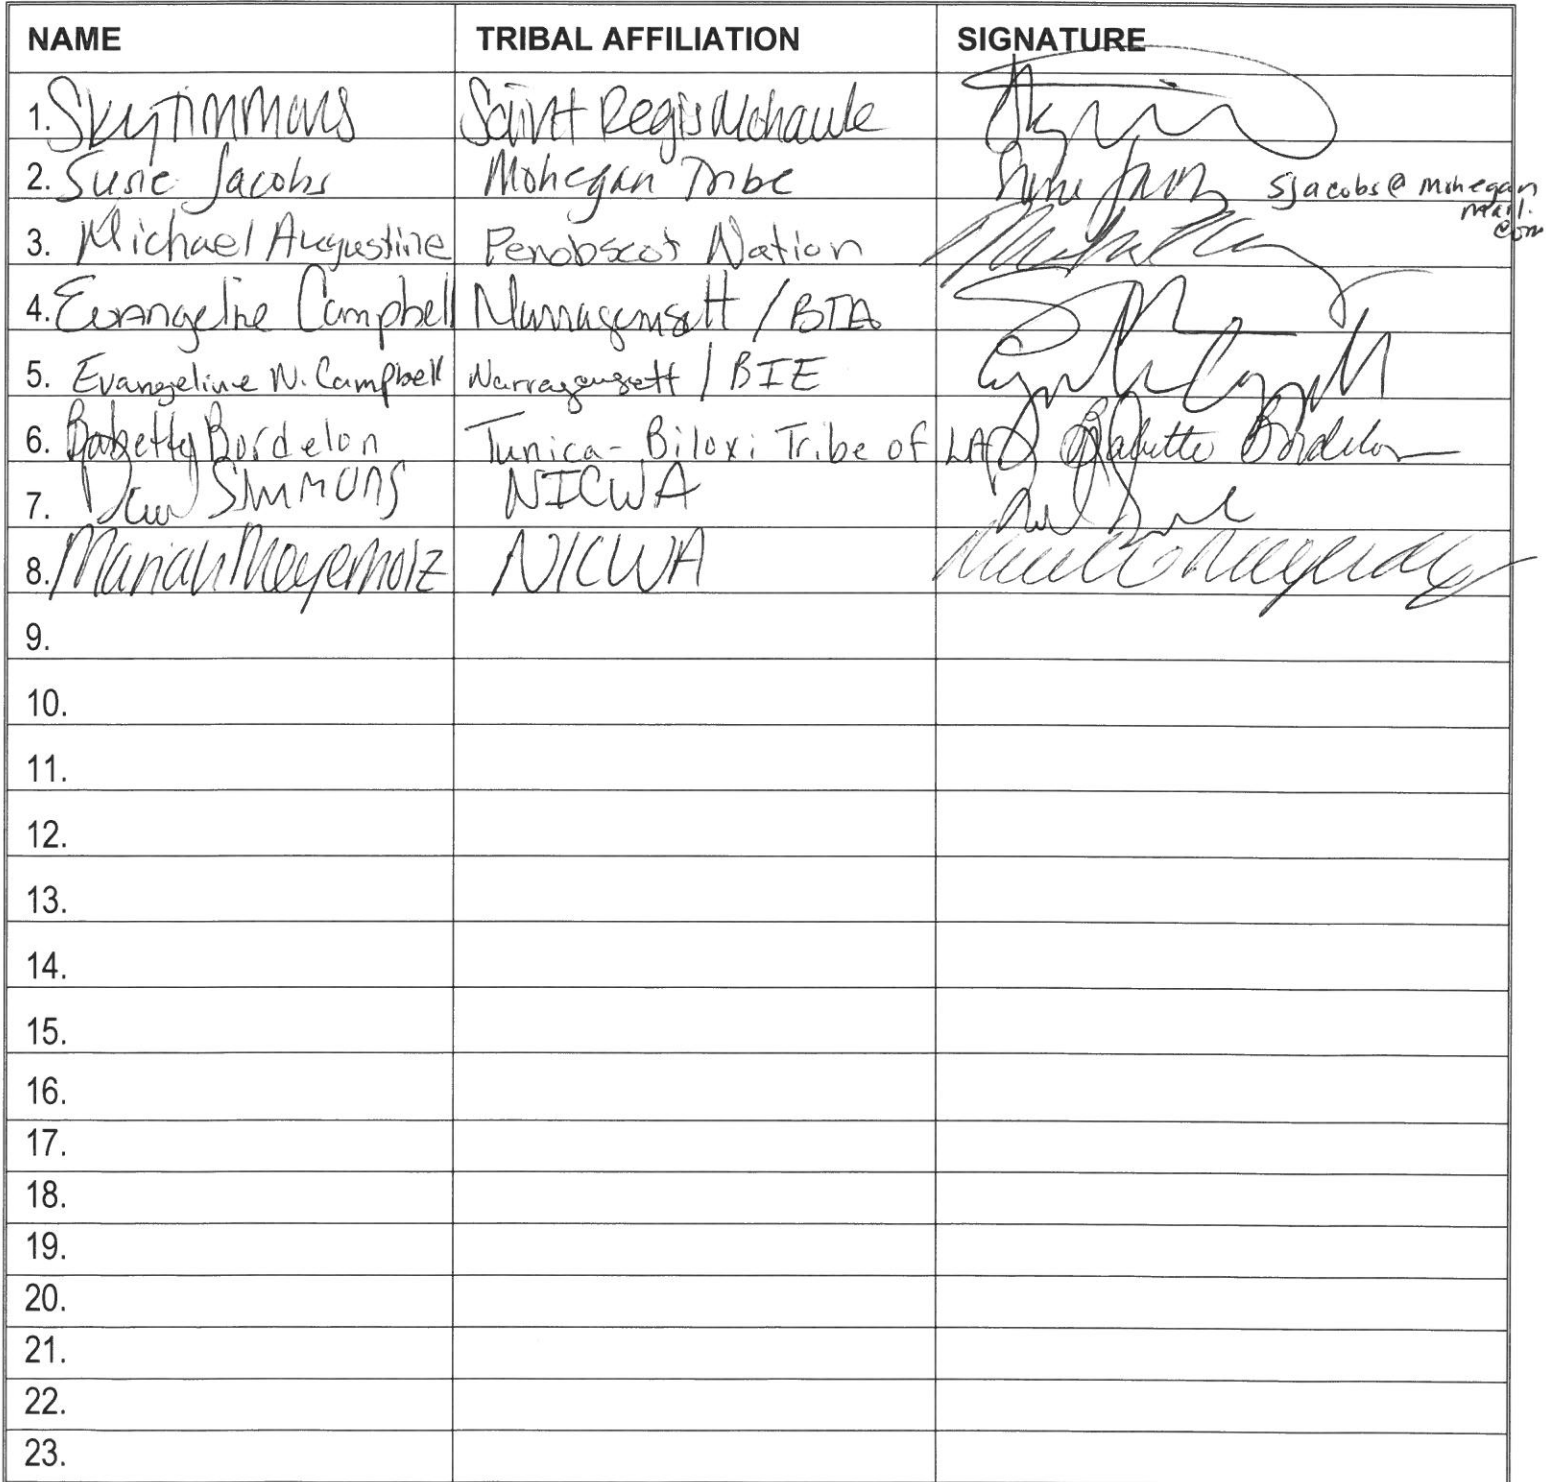 NAME TRIBAL AFFILIATION SIGNATURE
1. Sky Timmons Saint Regis Mohawk
2. Susie Jacobs Mohegan Tribe sjacobs@mohegan
mail.
com
3. Michael Augustine Penobscot Nation
4. Evangeline Campbell Narragansett / BIA
5. Evangeline N. Campbell Narragansett / BIE
6. Babette Bordelon Tunica-Biloxi Tribe of LA Babette Bordelon
7. Simmons NICWA
8. Mariah Meyerholz NICWA
9.
10.
11.
12.
13.
14.
15.
16.
17.
18.
19.
20.
21.
22.
23.